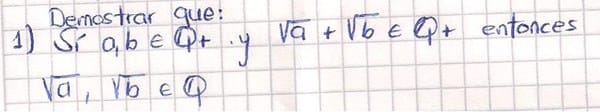 Demostrar que:
1) Si a,b ∈ Q+ y √a + √b ∈ Q+ entonces
√a, √b ∈ Q